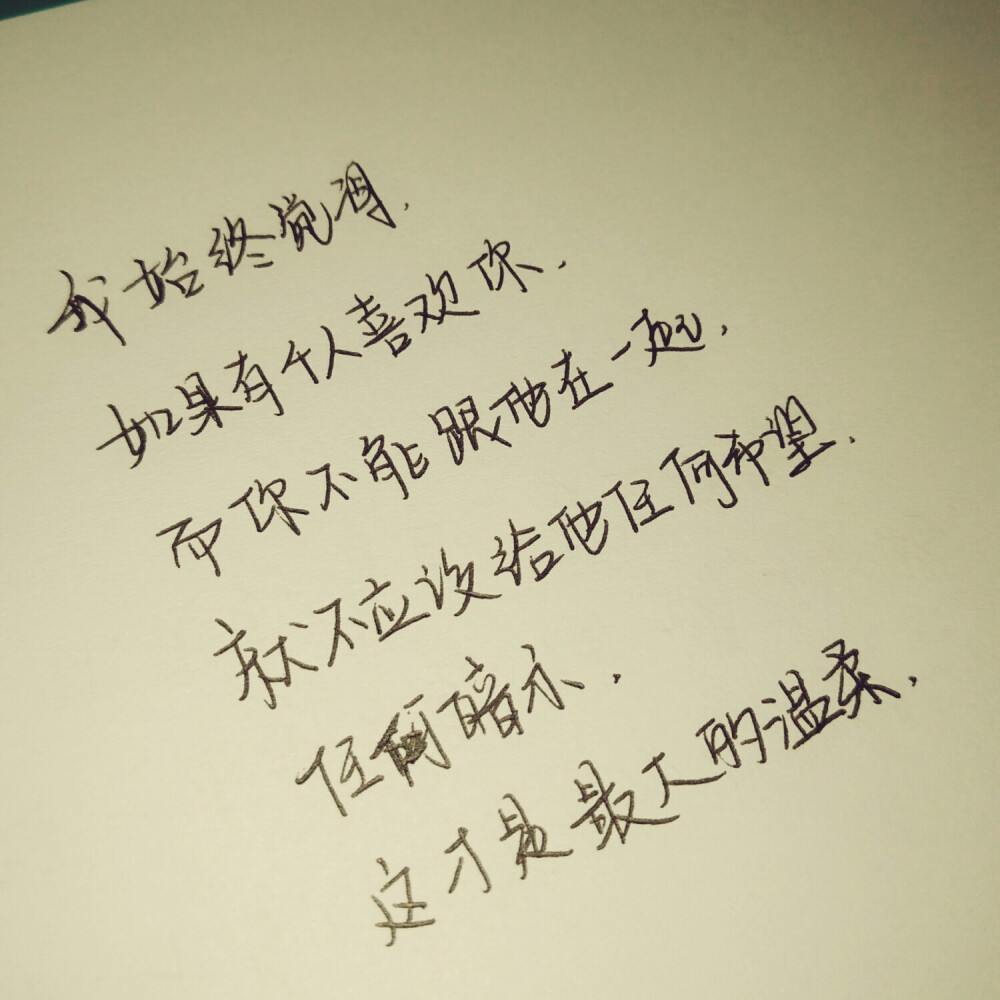 我始终觉得.
如果有个人喜欢你.
而你不能跟他在一起.
就不应该给他任何希望.
任何暗示.
这才是最大的温柔.